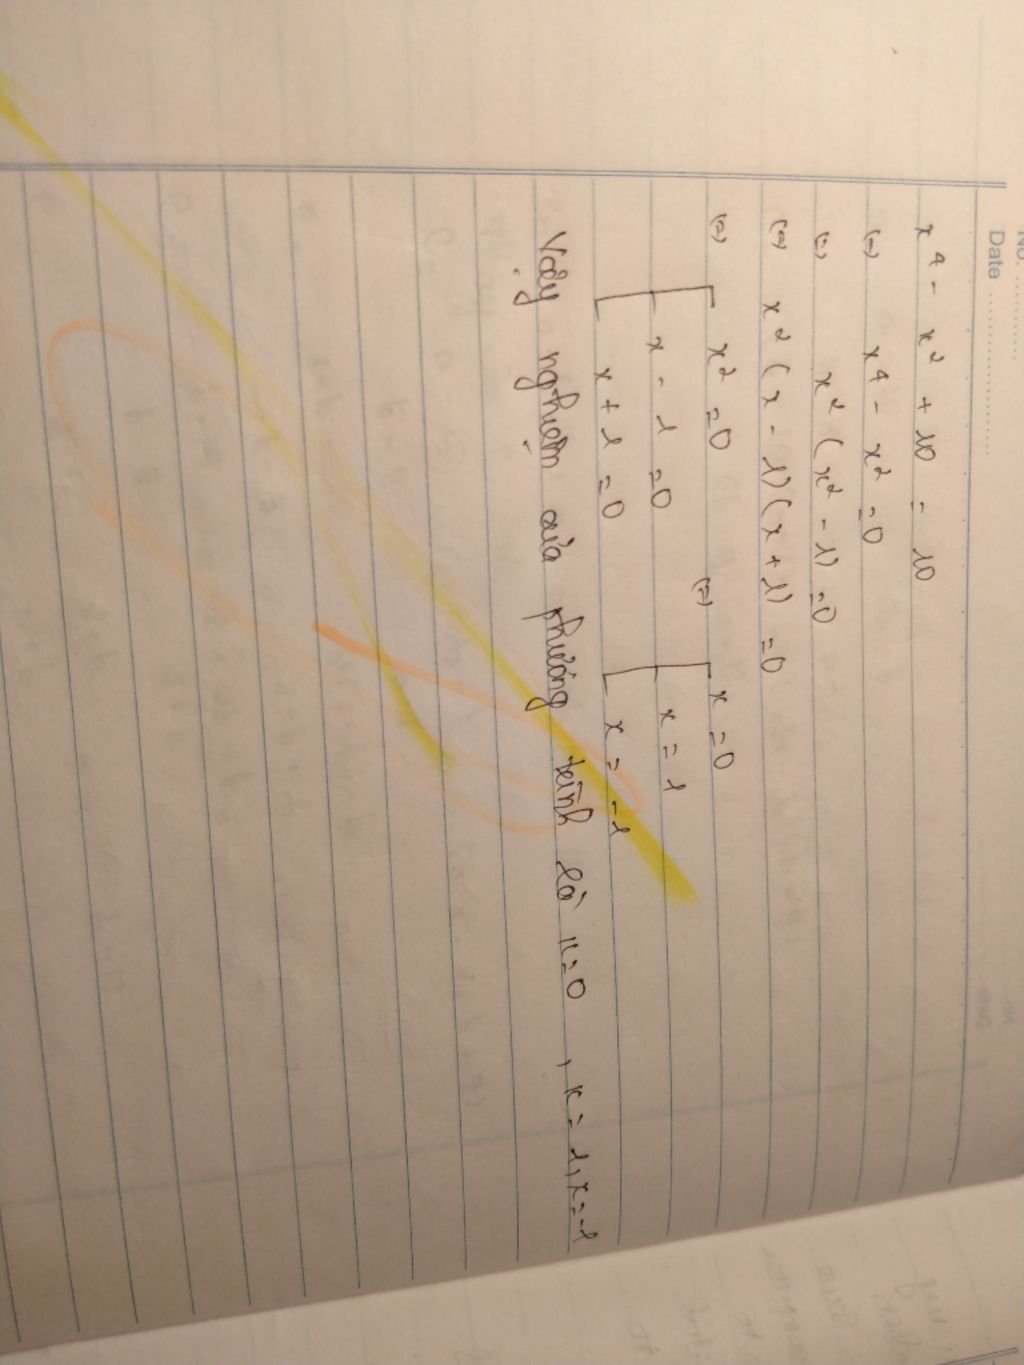 No. ............
Date ........................
x⁴ - x² + 10 = 10
(=) x⁴ - x² = 0
(=) x² (x² - 1) = 0
(=) x² (x - 1) (x + 1) = 0
(=) x² = 0 (=) x = 0
x - 1 = 0 x = 1
x + 1 = 0 x = -1
Vậy nghiệm của phương trình là x=0, x = 1, x = -1